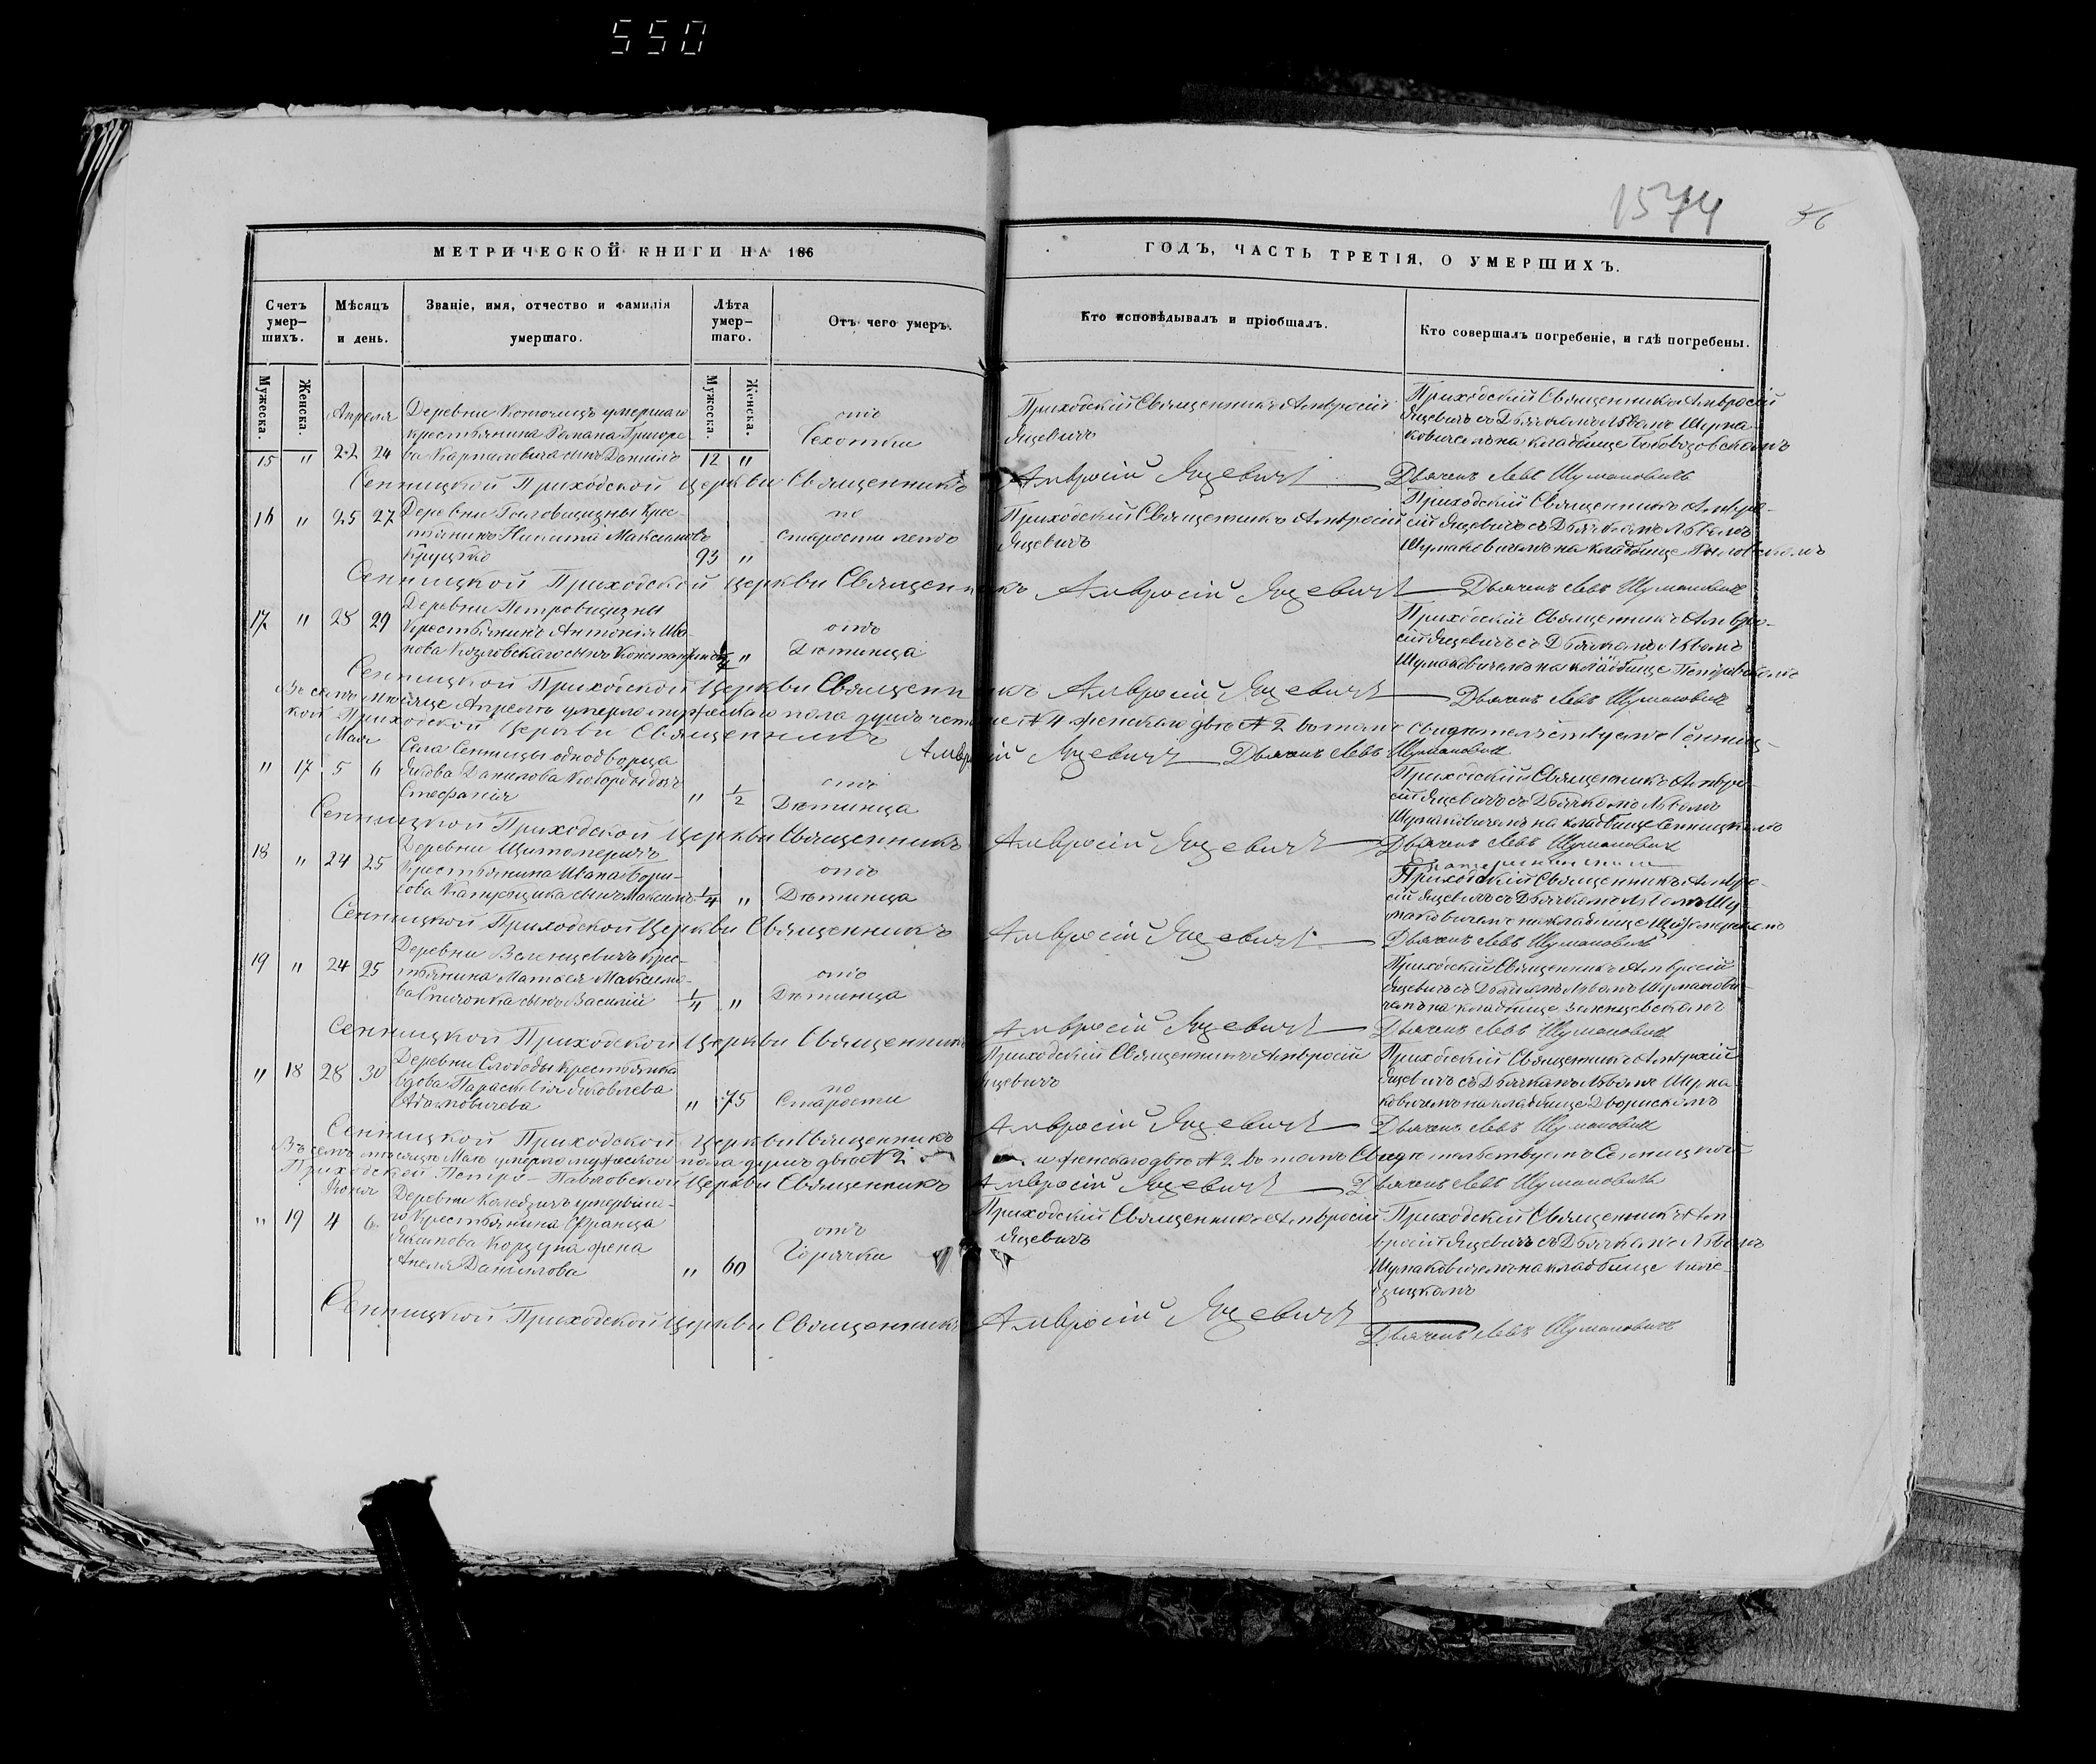 550
1574
56
МЕТРИЧЕСКОЙ КНИГИ НА 186
ГОДЪ, ЧАСТЬ ТРЕТІЯ, О УМЕРШИХЪ.
Счетъ умер-шихъ.
Мѣсяцъ и день.
Званіе, имя, отчество и фамилія умершаго.
Лѣта умер-шаго.
Отъ чего умеръ.
Кто исповѣдывалъ и пріобщалъ.
Кто совершалъ погребеніе, и гдѣ погребены.
Мужеска.
Женска.
Мужеска.
Женска.
Апреля
Деревни умершаго
крестьянина Романа Григорье-
ва Карпиловича сынъ Даніилъ
15 " 22 24
12 "
отъ
Чехотки
Приходскій Священникъ Амвросій
Яцевичъ
Приходскій Священникъ Амвросій
Яцевичъ съ Дьячкомъ Львомъ Шума-
ковичемъ на кладбище
Сенницкой Приходской Церкви Священникъ Амвросій Яцевичъ Дьячекъ Левъ Шумаковичъ
16 " 25 27
Деревни крес-
тьянинъ Никита Максимовъ
Круцько
93 "
по
старости летъ
Приходскій Священникъ Амвросій
Яцевичъ
Приходскій Священникъ Амвро-
сій Яцевичъ съ Дьячкомъ Львомъ
Шумаковичемъ на кладбище
Сенницкой Приходской Церкви Священникъ Амвросій Яцевичъ Дьячекъ Левъ Шумаковичъ
17 " 28 29
Деревни Петровщизны
Крестьянина Антонія Ива-
нова Козловскаго сынъ Константинъ
"
отъ
Дѣтинца
Приходскій Священникъ Амвро-
сій Яцевичъ съ Дьячкомъ Львомъ
Шумаковичемъ на кладбище
Сенницкой Приходской Церкви Священникъ Амвросій Яцевичъ Дьячекъ Левъ Шумаковичъ
Въ семъ месяце Апреле умерло мужескаго пола душъ четыре №4 женскаго две №2 въ томъ свидетельствуемъ Сенниц-
кой Приходской Церкви Священникъ Амвросій Яцевичъ Дьячекъ Левъ Шумаковичъ
Мая
Села Сенницы однодворца
Якова Данилова дочь
Стефанія
" 17 5 6
" 1/2
отъ
Дѣтинца
Приходскій Священникъ Амвро-
сій Яцевичъ съ Дьячкомъ Львомъ
Шумаковичемъ на кладбище Сенницкомъ
Сенницкой Приходской Церкви Священникъ Амвросій Яцевичъ Дьячекъ Левъ Шумаковичъ
18 " 24 25
Деревни Щитомеричъ
Крестьянина Ивана Бори-
сова Капустика сынъ Максимъ
1/4 "
отъ
Дѣтинца
Приходскій Священникъ Амвро-
сій Яцевичъ съ Дьячкомъ Львомъ Шу-
маковичемъ на кладбище
Сенницкой Приходской Церкви Священникъ Амвросій Яцевичъ Дьячекъ Левъ Шумаковичъ
19 " 24 25
Деревни крес-
тьянина Матвея Максимо-
ва сынъ Василій
1/4 "
отъ
Дѣтинца
Приходскій Священникъ Амвросій
Яцевичъ съ Дьячкомъ Львомъ Шумакови-
чемъ на кладбище
Сенницкой Приходской Церкви Священникъ Амвросій Яцевичъ Дьячекъ Левъ Шумаковичъ
" 18 28 30
Деревни Слободы Крестьянка
вдова Параскевія Яковлева
Адамовичева
" 75
по
Старости
Приходскій Священникъ Амвросій
Яцевичъ
Приходскій Священникъ Амвросій
Яцевичъ съ Дьячкомъ Львомъ Шума-
ковичемъ на кладбище Дворискомъ
Сенницкой Приходской Церкви Священникъ Амвросій Яцевичъ Дьячекъ Левъ Шумаковичъ
Въ семъ месяце Мае умерло мужескаго пола душъ две №2 и женскаго две №2 въ томъ Свидетельствуемъ Сенницкой
Приходской Петро-Павловской Церкви Священникъ Амвросій Яцевичъ Дьячекъ Левъ Шумаковичъ
Іюня
Деревни умерша-
го Крестьянина Франца
Корзуна жена
Анеля Данилова
" 19 4 6
" 60
отъ
Горячки
Приходскій Священникъ Амвросій
Яцевичъ
Приходскій Священникъ Ам-
вросій Яцевичъ съ Дьячкомъ Львомъ
Шумаковичемъ на кладбище
Сенницкой Приходской Церкви Священникъ Амвросій Яцевичъ
Дьячекъ Левъ Шумаковичъ